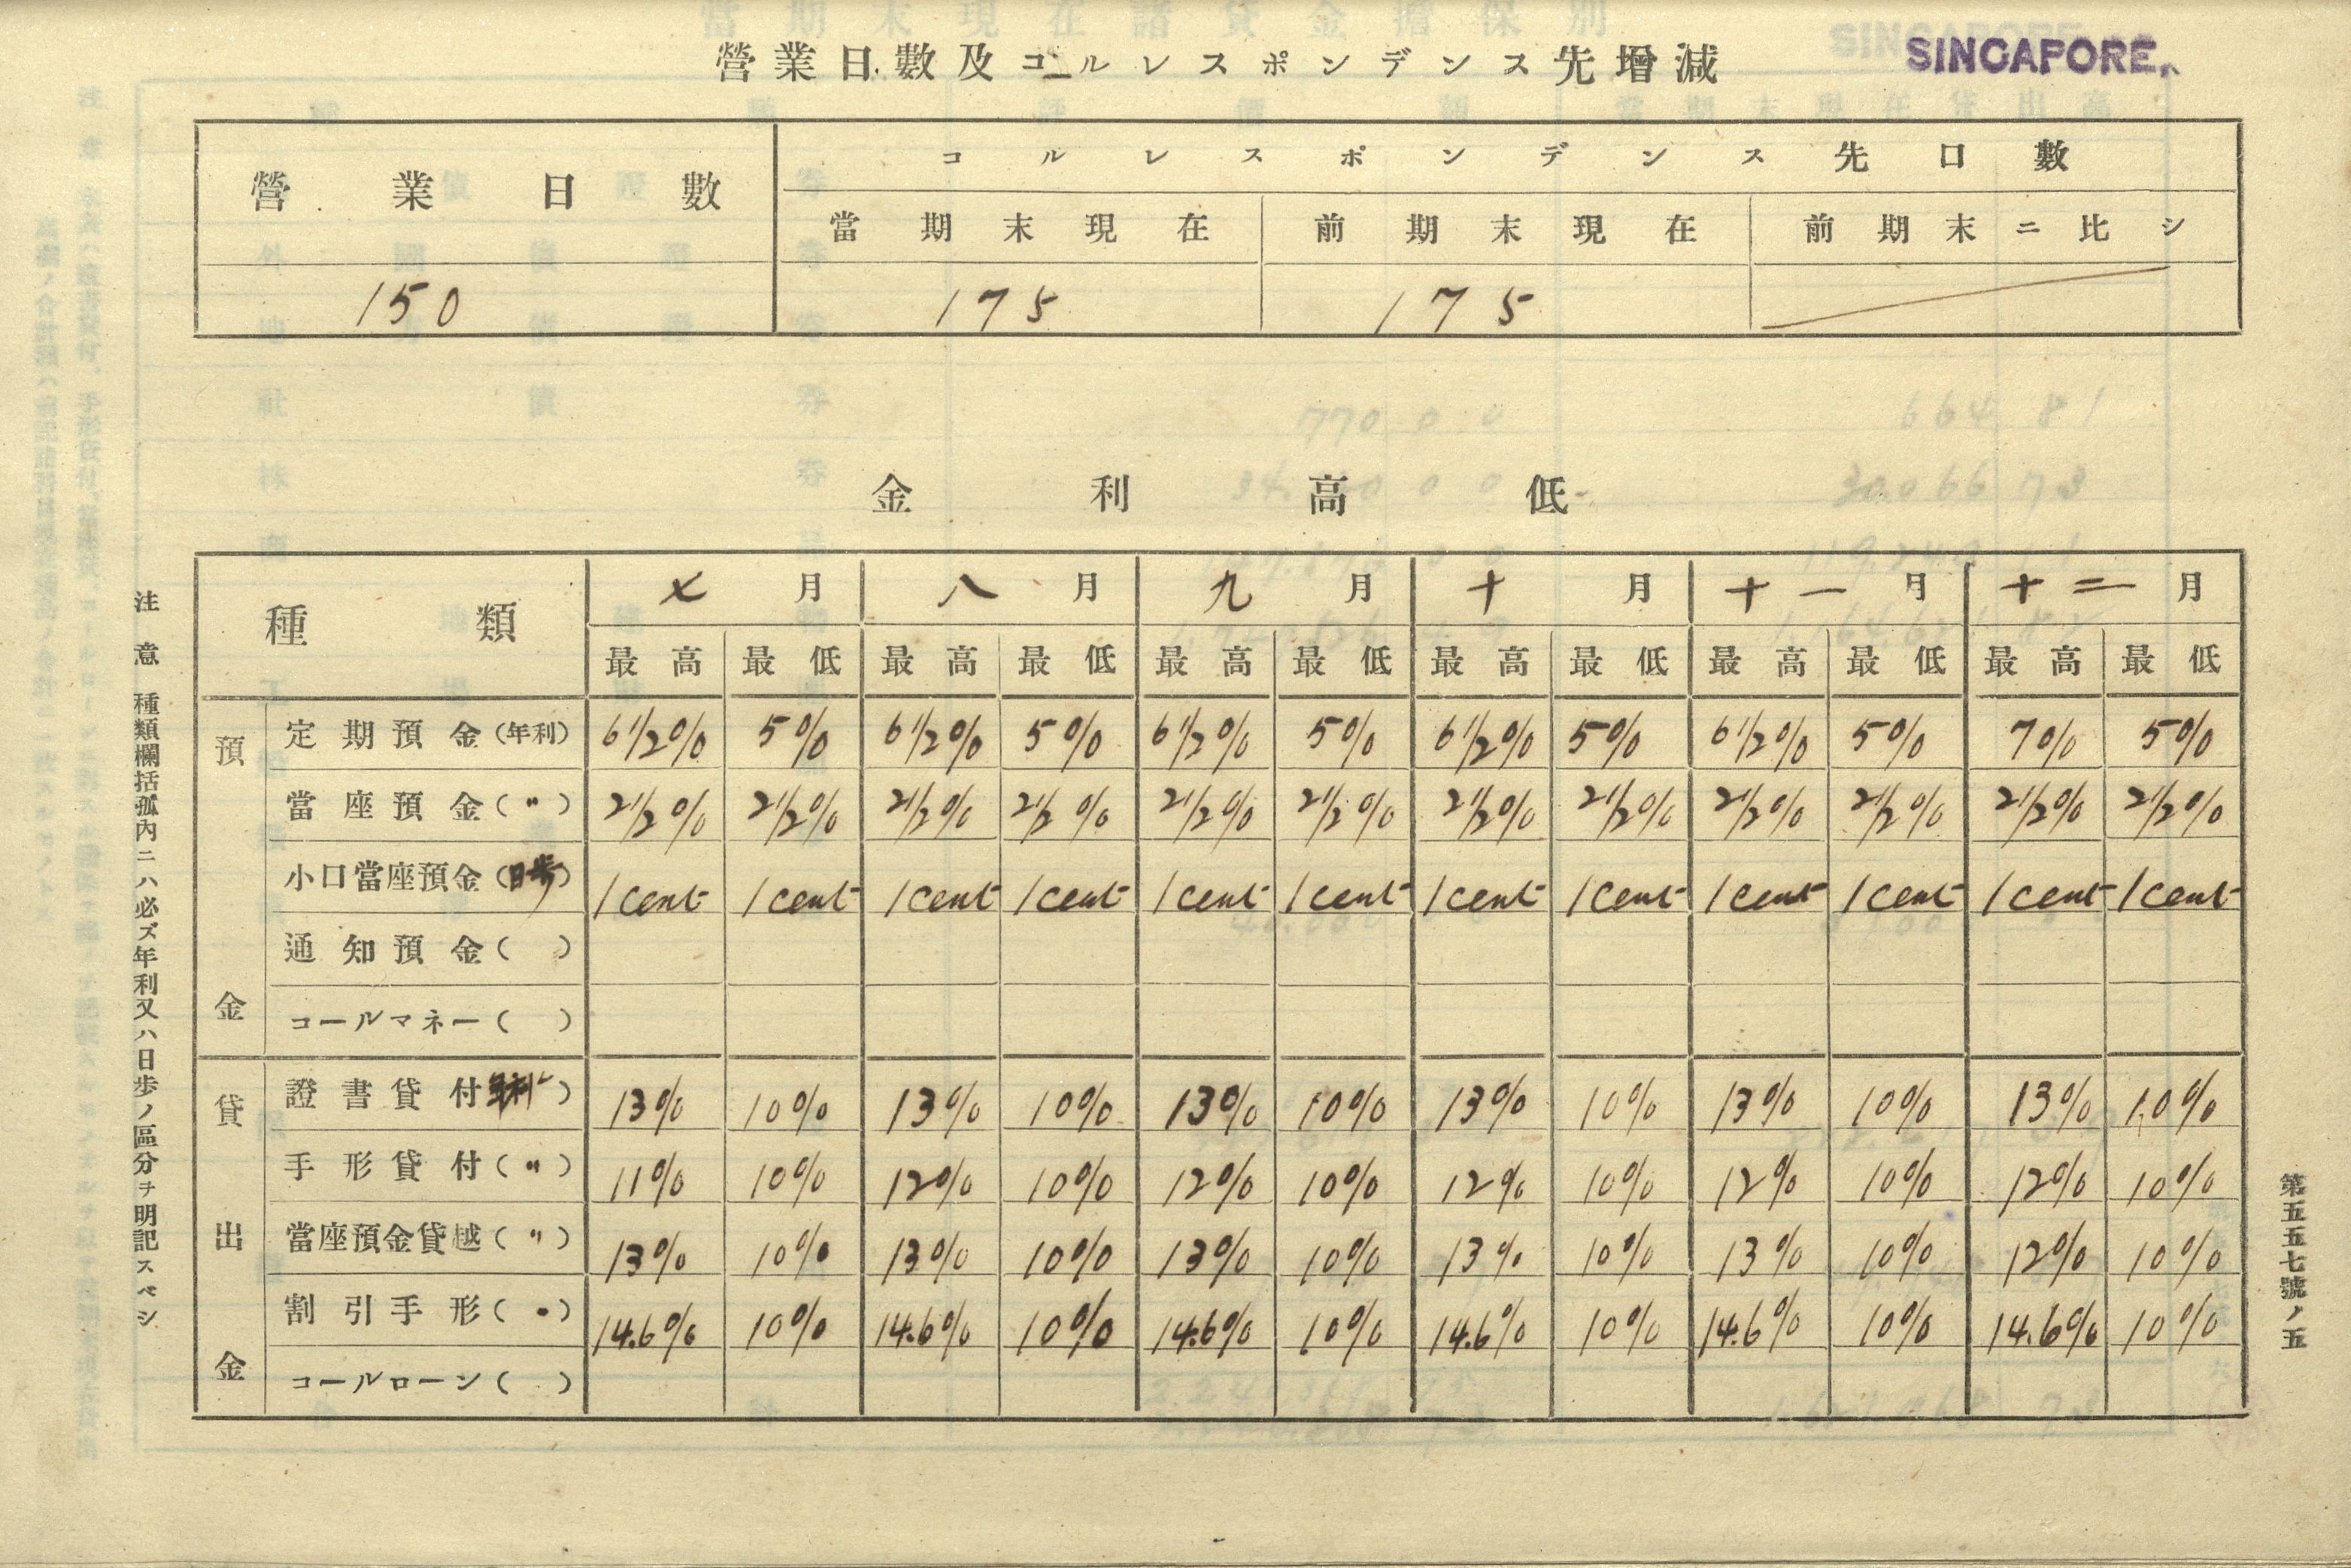 營業日數及コールレスポンデンス先增減
SINGAPORE.
營業日數 コルレスポンデンス先口數
當期末現在 前期末現在 前期末ニ比シ
150 175 175
金利高低
種類 七月 八月 九月 十月 十一月 十二月
最高 最低 最高 最低 最高 最低 最高 最低 最高 最低 最高 最低
預金
定期預金(年利) 6 1/2% 5% 6 1/2% 5% 6 1/2% 5% 6 1/2% 5% 6 1/2% 5% 7% 5%
當座預金(〃) 2 1/2% 2 1/2% 2 1/2% 2 1/2% 2 1/2% 2 1/2% 2 1/2% 2 1/2% 2 1/2% 2 1/2% 2 1/2% 2 1/2%
小口當座預金(日歩) 1 cent 1 cent 1 cent 1 cent 1 cent 1 cent 1 cent 1 cent 1 cent 1 cent 1 cent 1 cent
通知預金( )
コールマネー( )
貸出金
證書貸付(年利) 13% 10% 13% 10% 13% 10% 13% 10% 13% 10% 13% 10%
手形貸付(〃) 11% 10% 12% 10% 12% 10% 12% 10% 12% 10% 12% 10%
當座預金貸越(〃) 13% 10% 13% 10% 13% 10% 13% 10% 13% 10% 12% 10%
割引手形(〃) 14.6% 10% 14.6% 10% 14.6% 10% 14.6% 10% 14.6% 10% 14.6% 10%
コールローン( )
注意 種類欄括孤內ニハ必ズ年利又ハ日歩ノ區分ヲ明記スベシ
第五五七號ノ五